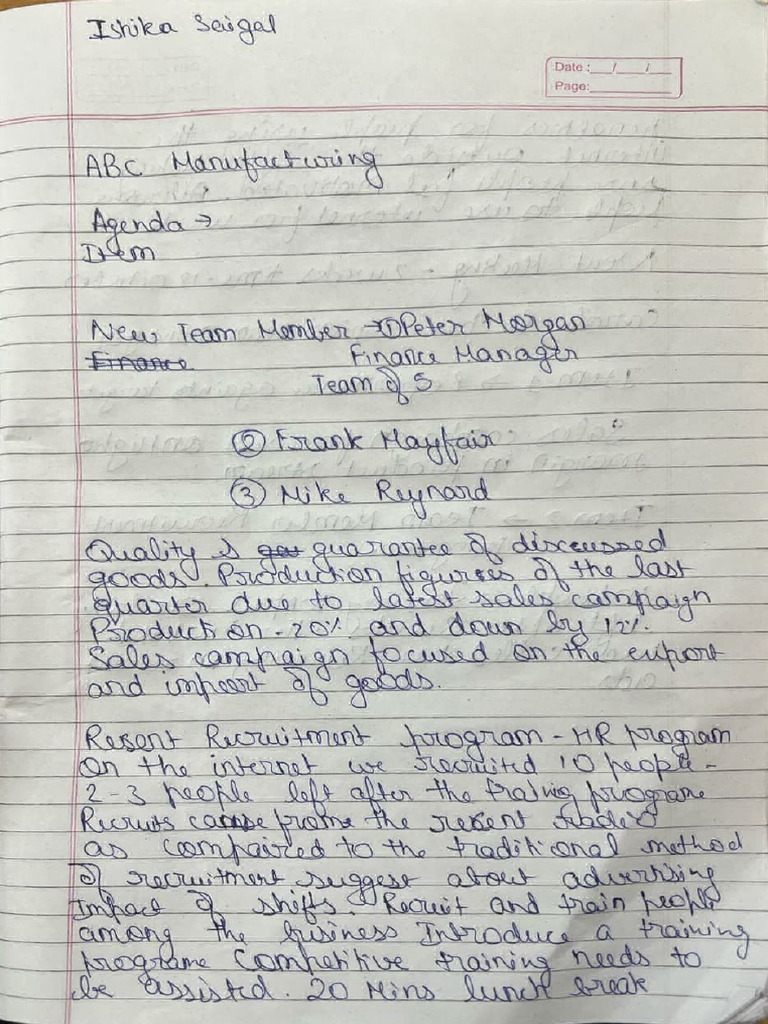 Ishika Saigal
Date: __/__/__
Page: ______
ABC Manufacturing
Agenda →
Item
New Team Member → ① Peter Morgan
Finance Finance Manager
Team of 5
② Frank Mayfair
③ Mike Reynard
Quality is guarantee of discussed
goods. Production figures of the last
quarter due to latest sales campaign
Production - 20% and down by 12%.
Sales campaign focused on the export
and import of goods.
Resent Recruitment program - HR program
On the internet we recruited 10 people -
2-3 people left after the traing programe
Recruits from the resent
as compaired to the traditional method
of recruitment suggest about advertising
Impact of shifts. Recruit and train people
among the business Introduce a training
programe Competitive training needs to
be assisted. 20 Mins lunch break